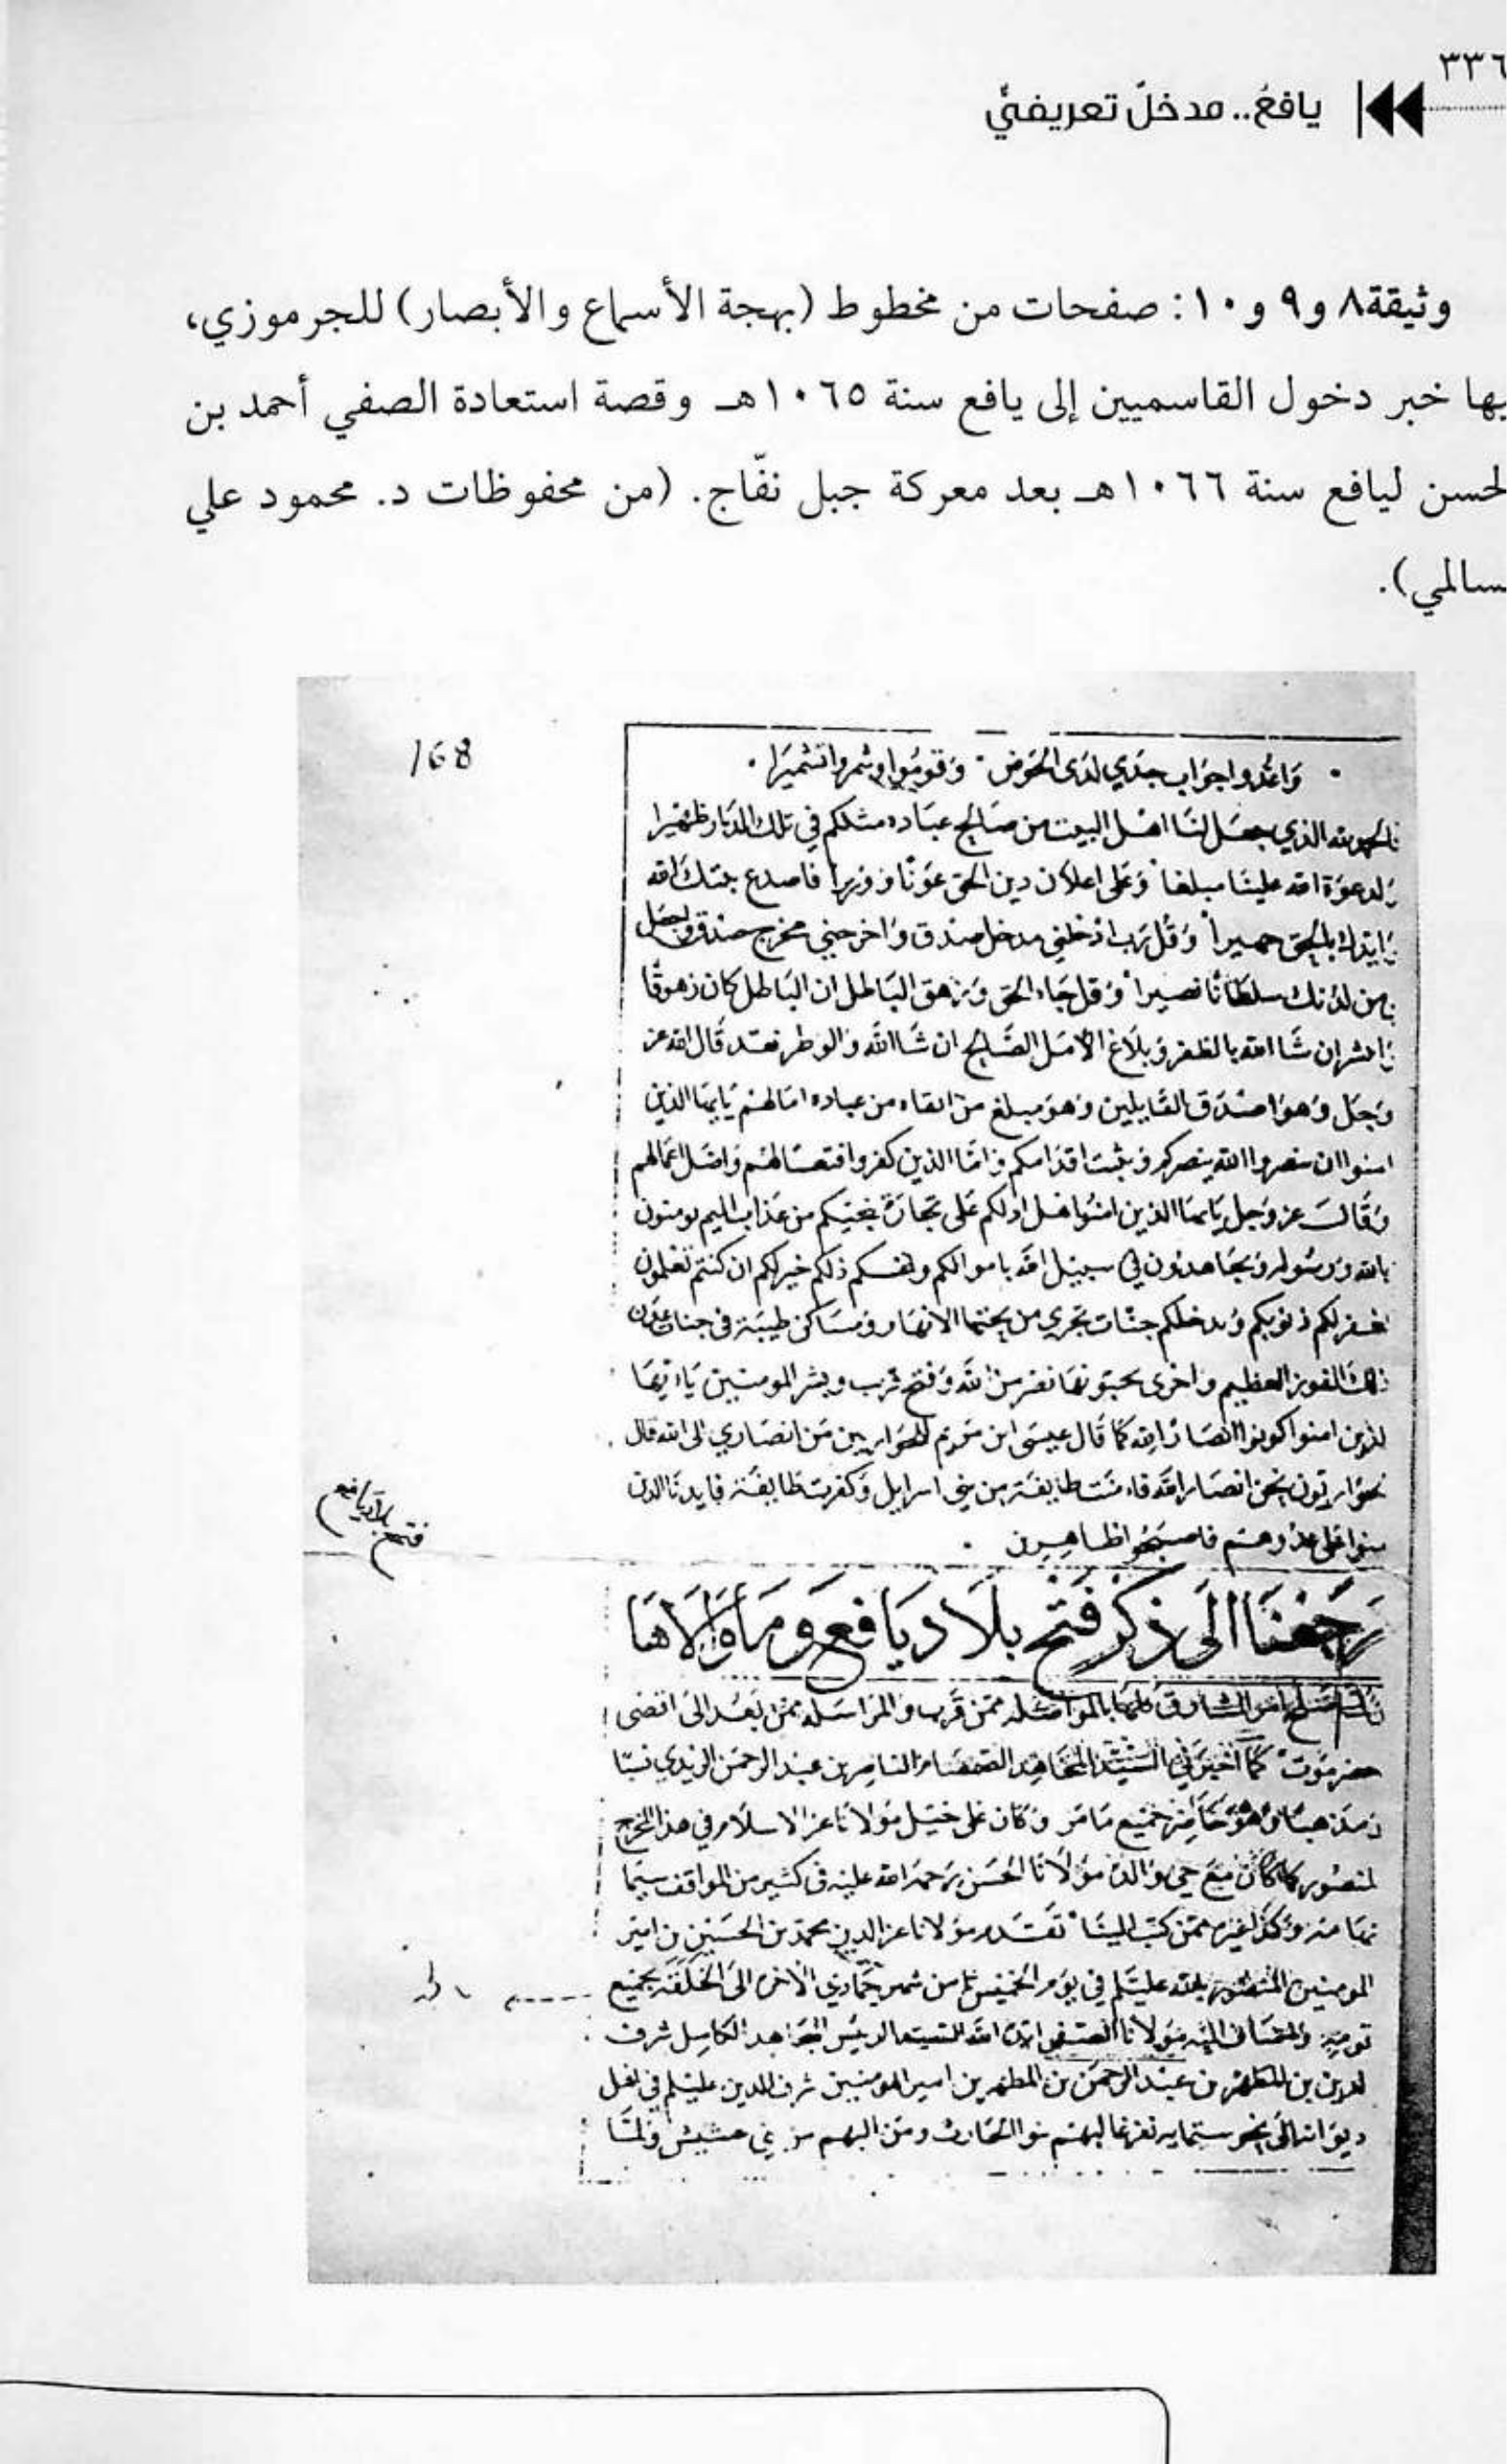 ٣٣٦
يافعُ.. مدخلٌ تعريفيٌّ
وثيقة٨ و٩ و١٠: صفحات من مخطوط (بهجة الأسماع والأبصار) للجرموزي،
بها خبر دخول القاسميين إلى يافع سنة ١٠٦٥هـ وقصة استعادة الصفي أحمد بن
لحسن ليافع سنة ١٠٦٦هـ بعد معركة جبل نفّاج. (من محفوظات د. محمود علي
سالمي).
168
واعدوا جواب جدي لدى الحوض وقوموا وشمروا تشميرا
الذي جعل لنا اهل البيت من صالح عباده مثلكم في تلك الديار ظهيرا
علينا مبلغا وعلى اعلان دين الحق عونا ووزيرا فاصدع
بالحق وقل رب ادخلني مدخل صدق واخرجني مخرج صدق واجعل
من لدنك سلطانا نصيرا وقل جاء الحق وزهق الباطل ان الباطل كان زهوقا
ان شا الله بالظفر وبلاغ الامل الصالح ان شا الله والوطر فقد قال الله عز
وجل وهو اصدق القايلين وهو مبلغ من اتقاه من عباده امالهم يايها الذين
امنوا ان تنصروا الله ينصركم ويثبت اقدامكم واما الذين كفروا فتعسا لهم واضل اعمالهم
وقال عز وجل يايها الذين امنوا هل ادلكم على تجارة تنجيكم من عذاب اليم تومنون
بالله ورسوله وتجاهدون في سبيل الله باموالكم وانفسكم ذلكم خير لكم ان كنتم تعلمون
يغفر لكم ذنوبكم ويدخلكم جنات تجري من تحتها الانهار ومساكن طيبة في جنات عدن
ذلك الفوز العظيم واخرى تحبونها نصر من الله وفتح قريب وبشر المومنين يا ايها
لذين امنوا كونوا انصار الله كما قال عيسى ابن مريم للحواريين من انصاري الى الله قال
حواريون نحن انصار الله فامنت طايفة من بني اسرايل وكفرت طايفة فايدنا الذين
منوا على عدوهم فاصبحوا ظاهرين
فتح بلاد يافع
رجعنا الى ذكر فتح بلاد يافع وما والاها
بالمواصله ممن قرب والمراسله ممن بعد الى اقصى
حضرموت كما اخبرني السيد المجاهد الناصر بن عبد الرحمن الزيدي نسبا
ومذهبا وهو جميع ما مر وكان على خيل مولانا عز الاسلام في هذا المخرج
لمنصور كما كان مع والده مولانا الحسن رحمة الله عليه في كثير من المواقف سيما
وكذا غيره ممن كتب الينا تقدم مولانا عز الدين محمد بن الحسين بن امير
المومنين المنصور بالله عليلم في يوم الخميس من شهر جمادي الاخرى الى الخلقة بجميع
اليه مولانا الصفي الرييس المجاهد الكامل شرف
لدين بن المطهر بن عبد الرحمن بن المطهر بن امير المومنين شرف الدين عليلم في
نحو ستمايه نفر غالبهم بنو الحارث ومن اليهم من بني حشيش ولما